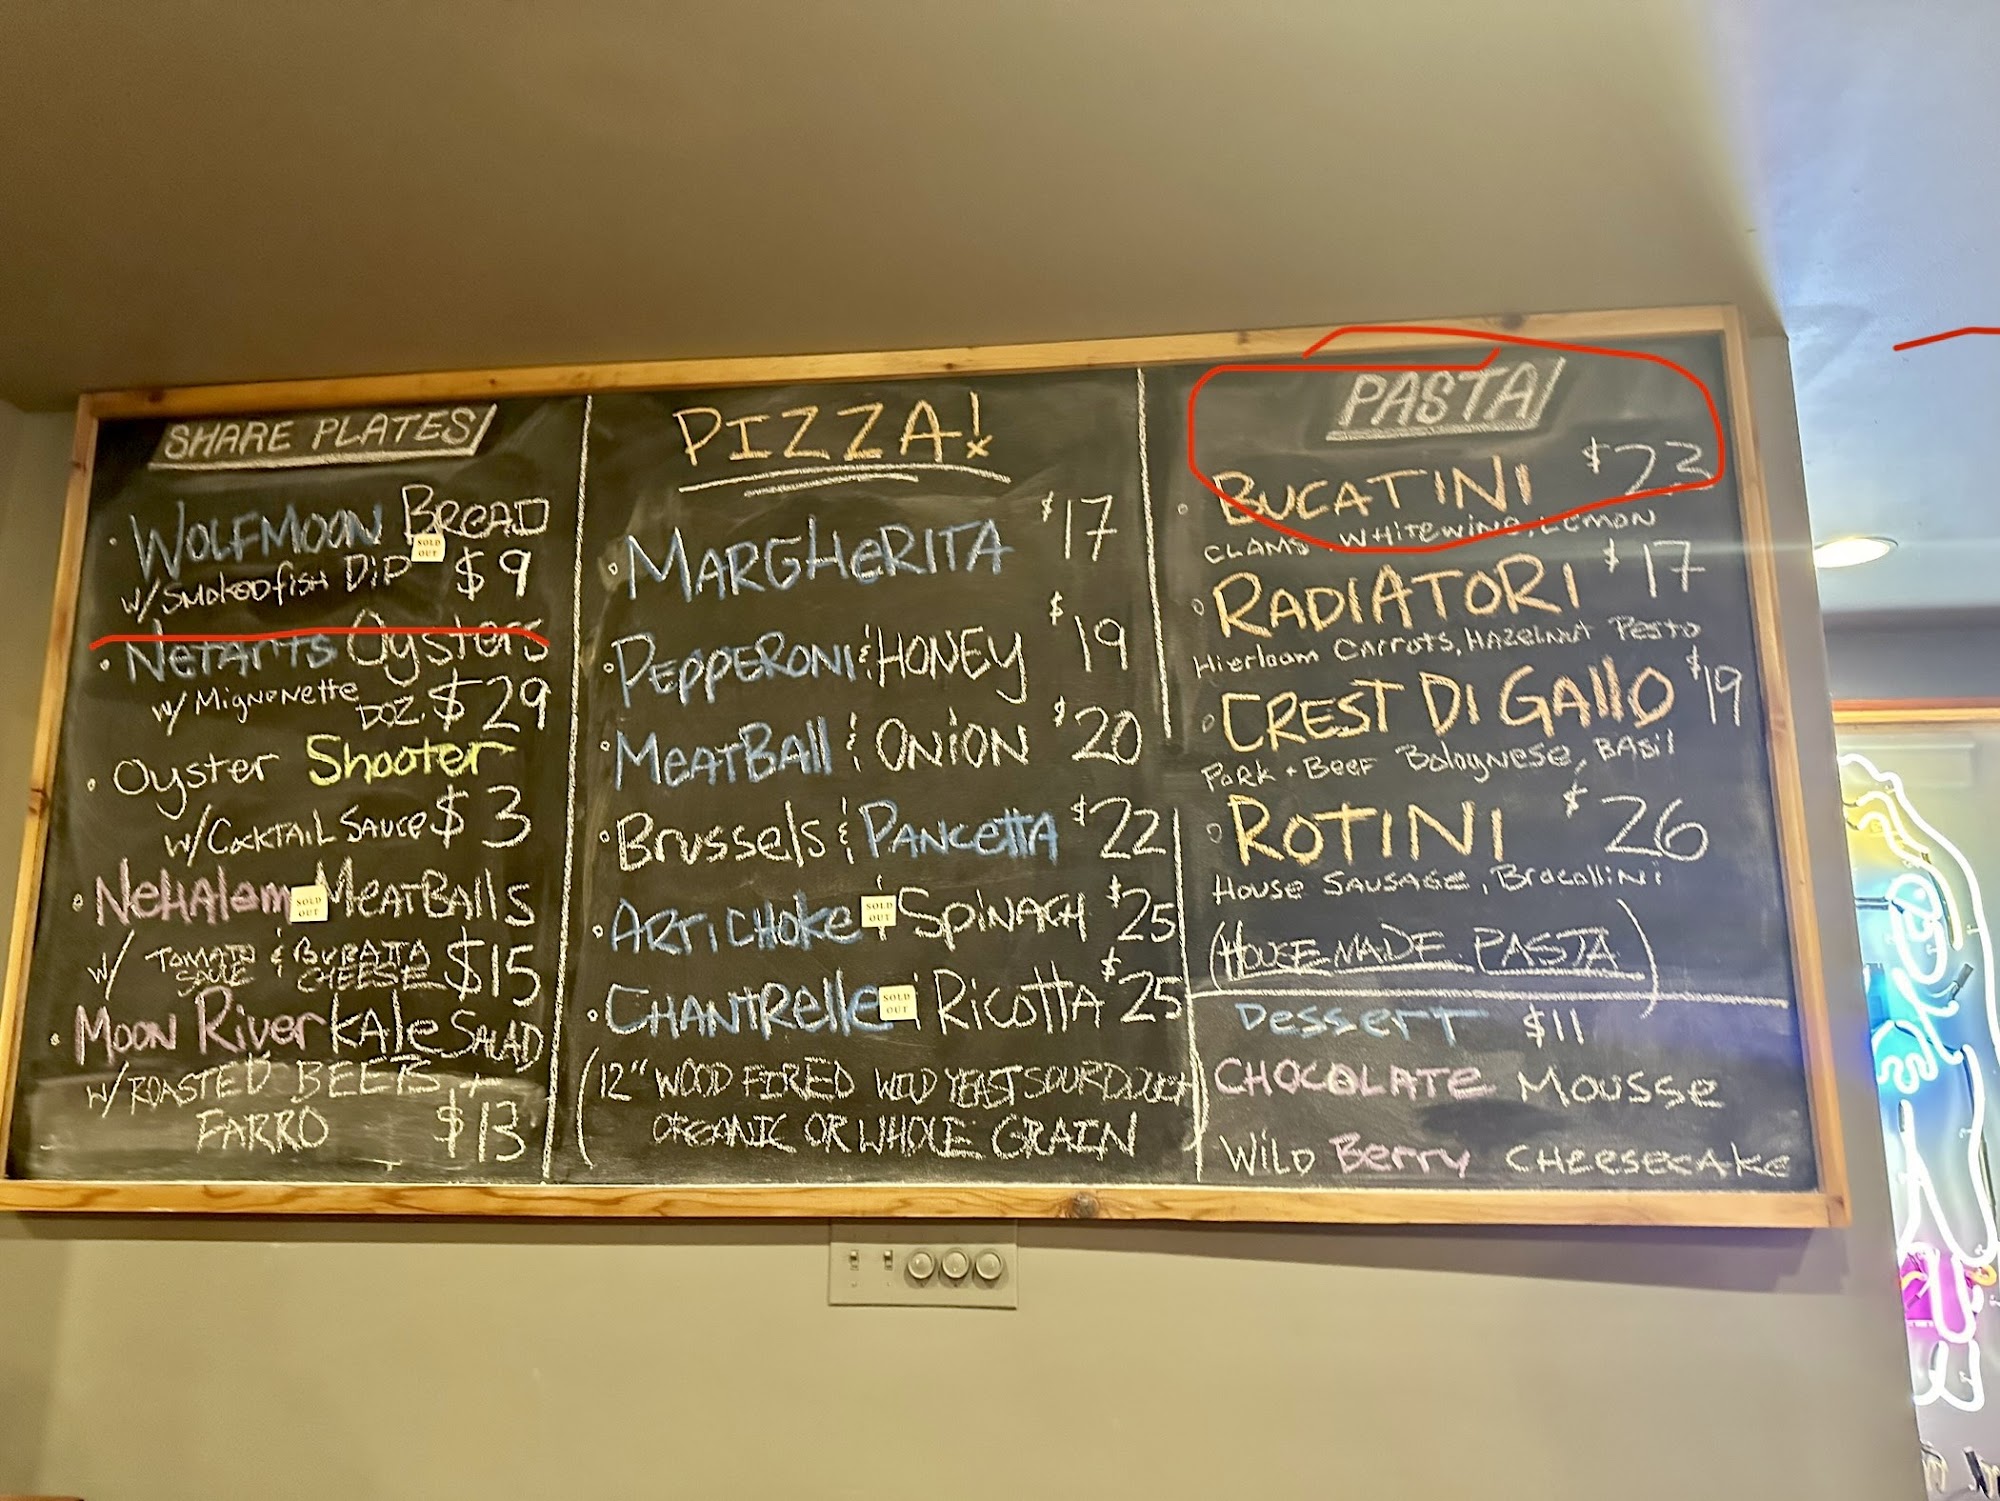 SHARE PLATES
WOLFMOON BREAD
SOLD OUT
W/SMOKEDFISH DIP $9
NETARTS OYSTERS
W/ MIGNONETTE DOZ. $29
OYSTER SHOOTER
W/COCKTAIL SAUCE $3
NEHALEM MEATBALLS
SOLD OUT
W/ TOMATO SAUCE & BURATTA CHEESE $15
MOON RIVER KALE SALAD
W/ROASTED BEETS +
FARRO $13
PIZZA!
MARGHERITA $17
PEPPERONI & HONEY $19
MEATBALL & ONION $20
BRUSSELS & PANCETTA $22
ARTICHOKE & SPINACH $25
SOLD OUT
CHANTRELLE & RICOTTA $25
SOLD OUT
(12" WOOD FIRED WILD YEAST SOURDOUGH
ORGANIC OR WHOLE GRAIN)
PASTA
BUCATINI $23
CLAMS, WHITEWINE, LEMON
RADIATORI $17
HIERLOAM CARROTS, HAZELNUT PESTO
CREST DI GALLO $19
PORK + BEEF BOLOGNESE, BASIL
ROTINI $26
HOUSE SAUSAGE, BROCOLLINI
(HOUSEMADE PASTA)
DESSERT $11
CHOCOLATE MOUSSE
WILD BERRY CHEESECAKE